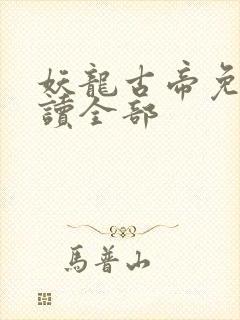 妖龍古帝免
讀全部
馬普山